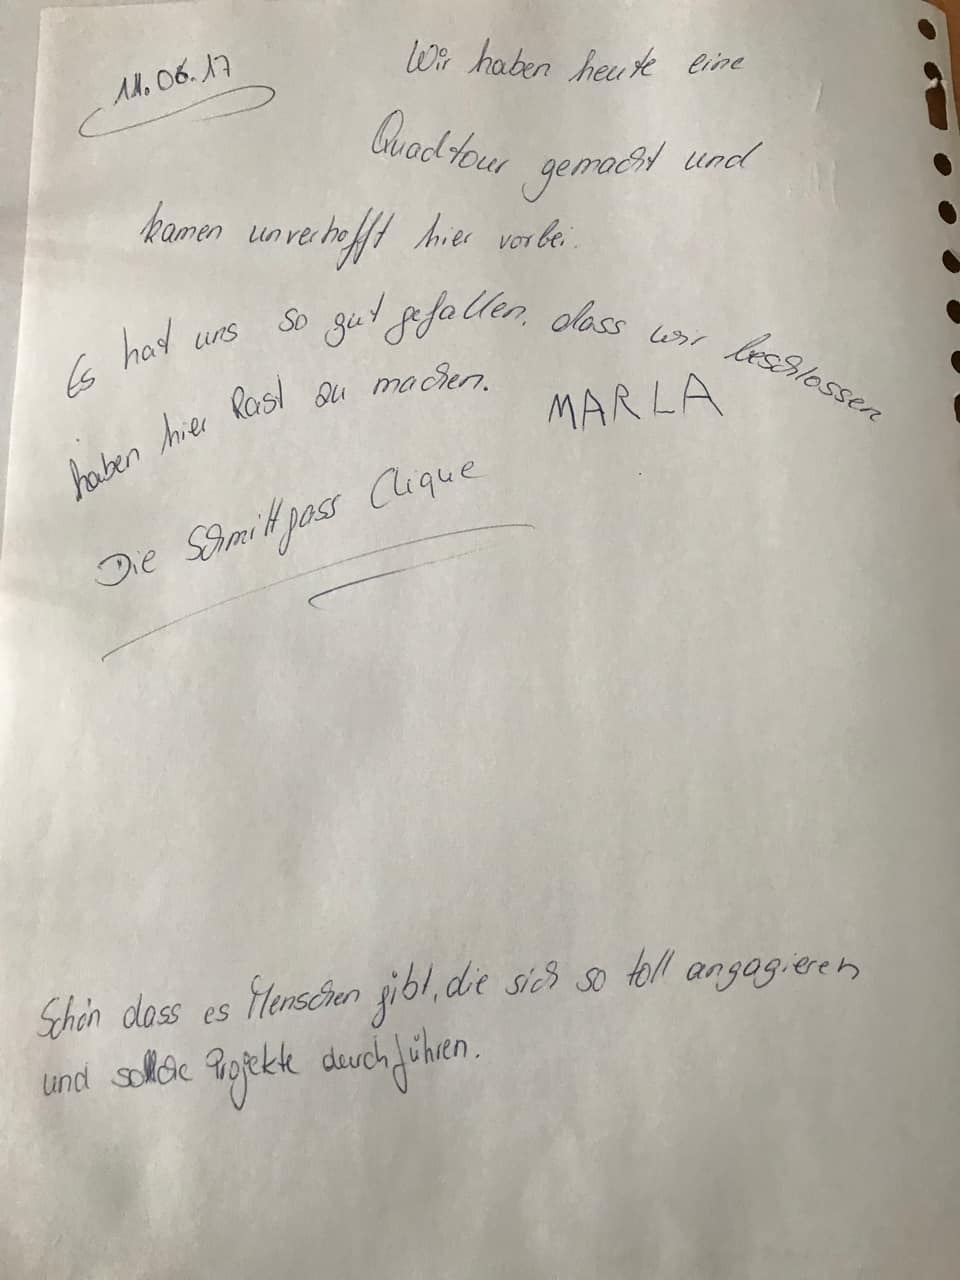 11.06.17
Wir haben heute eine
Quadtour gemacht und
kamen unverhofft hier vorbei.
Es hat uns so gut gefallen, dass wir beschlossen
haben hier Rast zu machen.
MARLA
Die Schmittpass Clique
Schön dass es Menschen gibt, die sich so toll angagieren
und solche Projekte durchführen.